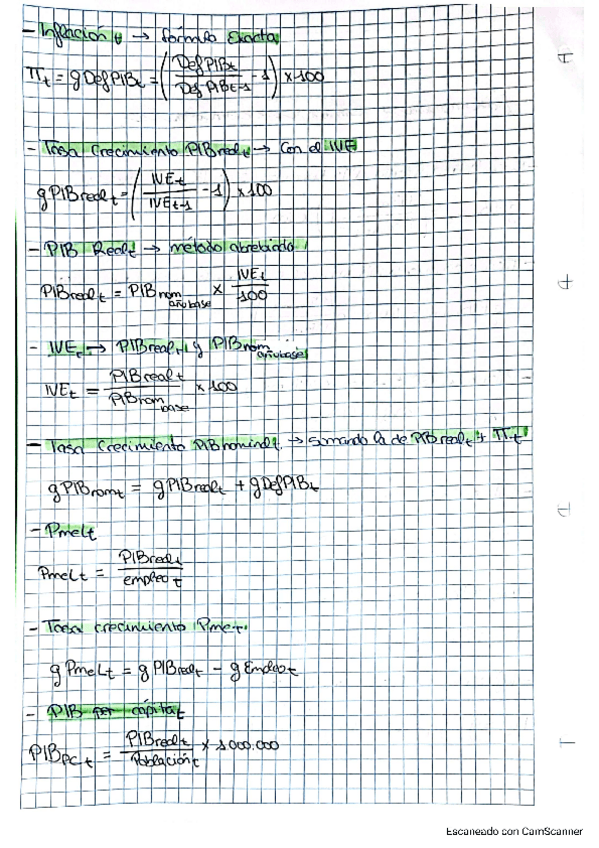 - Inflación t → fórmula Exacta
Πt = gDefPIBt = (DefPIBt / DefPIBt-1 - 1) × 100
- Tasa Crecimiento PIBrealt → Con el IVE
gPIBrealt = (IVEt / IVEt-1 - 1) × 100
- PIB Realt → método abrebiado
PIBrealt = PIBnom añobase × IVEt / 100
- IVEt → PIBrealt y PIBnom añobase
IVEt = PIBrealt / PIBnom base × 100
- Tasa Crecimiento PIBnominalt → Sumando la de PIBrealt + Πt
gPIBnomt = gPIBrealt + gDefPIBt
- PmeLt
PmeLt = PIBrealt / empleot
- Tasa crecimiento Pmet
gPmeLt = gPIBrealt - gEmpleot
- PIB per cápitat
PIBPCt = PIBrealt / Poblaciónt × 1000.000
Escaneado con CamScanner